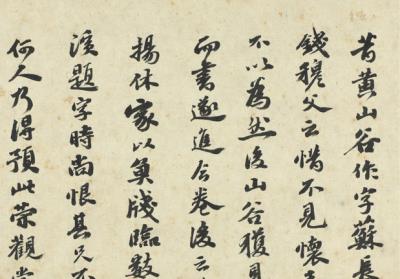 昔黄山谷作字蘇長
錢穆父云惜不見懷素
不以為然後山谷獲見
而書遂進今卷後云
揚休家以奠牋臨數
溪題字時尚恨其兄不
何人乃得預此榮觀當